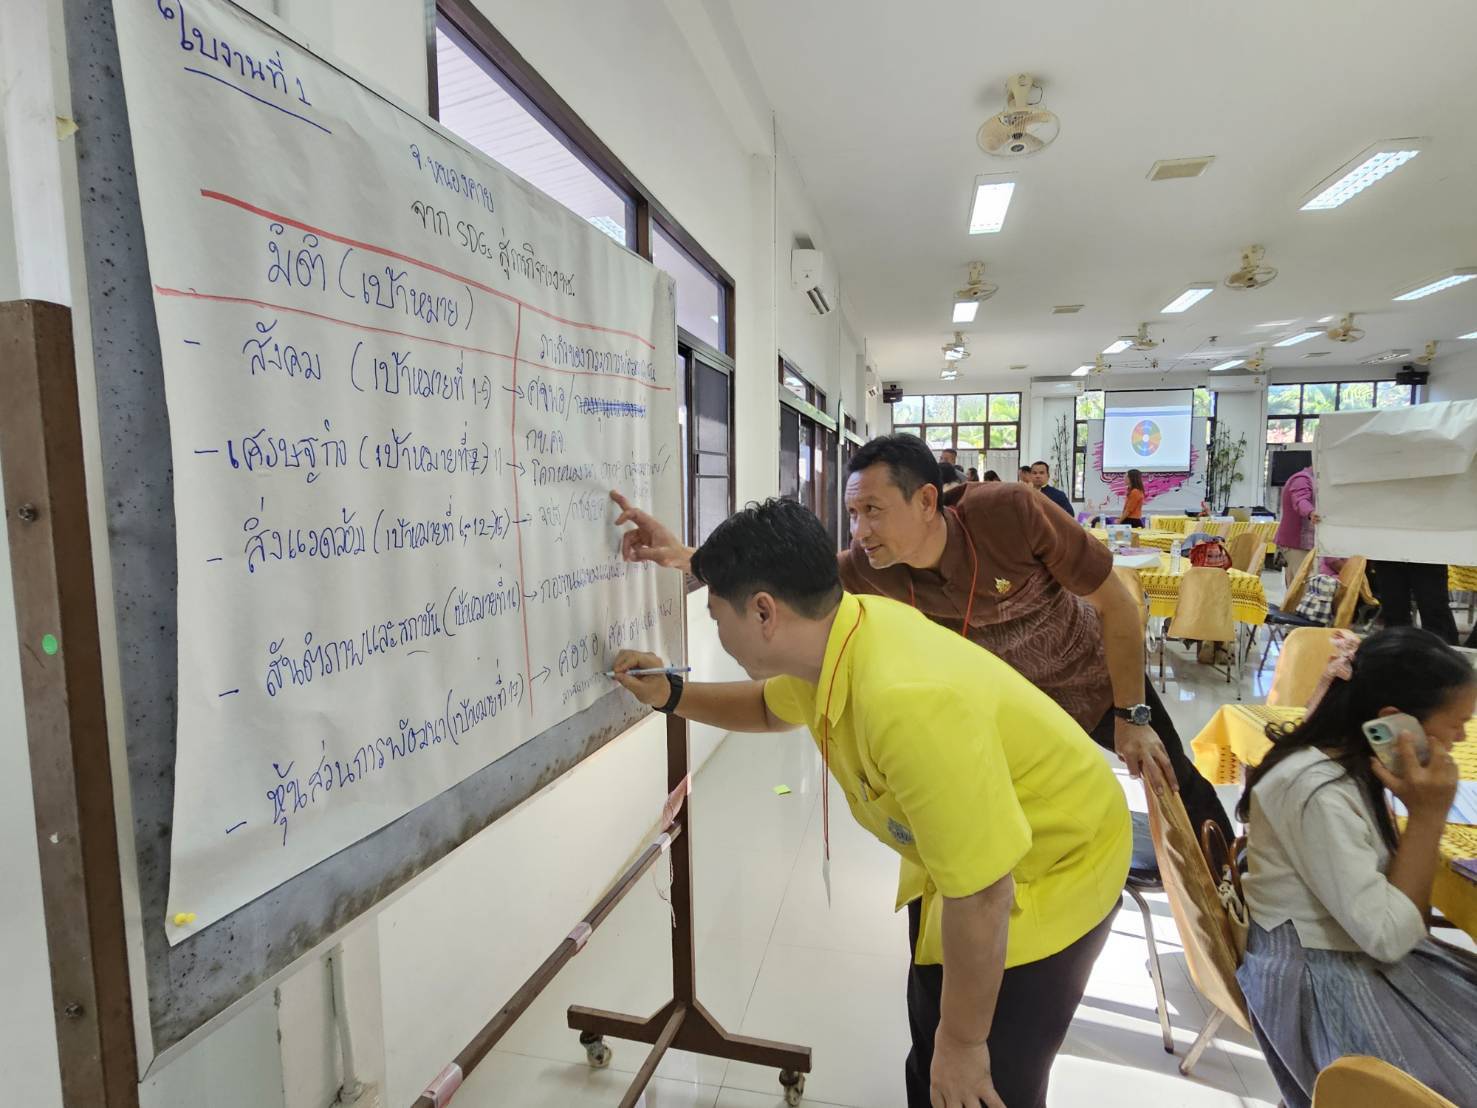 ใบงานที่ 1
จ.หนองคาย
จาก SDGs สู่ภารกิจของ พช.
มิติ (เป้าหมาย)
ภารกิจของกรมการพัฒนาชุมชน
- สังคม (เป้าหมายที่ 1-5) → ศจพอ/
กข.คจ.
- เศรษฐกิจ (เป้าหมายที่ 7-11) → โคกหนองนา
- สิ่งแวดล้อม (เป้าหมายที่ 6,12-15) →
- สันติภาพและสถาบัน (เป้าหมายที่ 16) → กองทุนแม่ของแผ่นดิน
- หุ้นส่วนการพัฒนา (เป้าหมายที่ 17) → ศอช อ